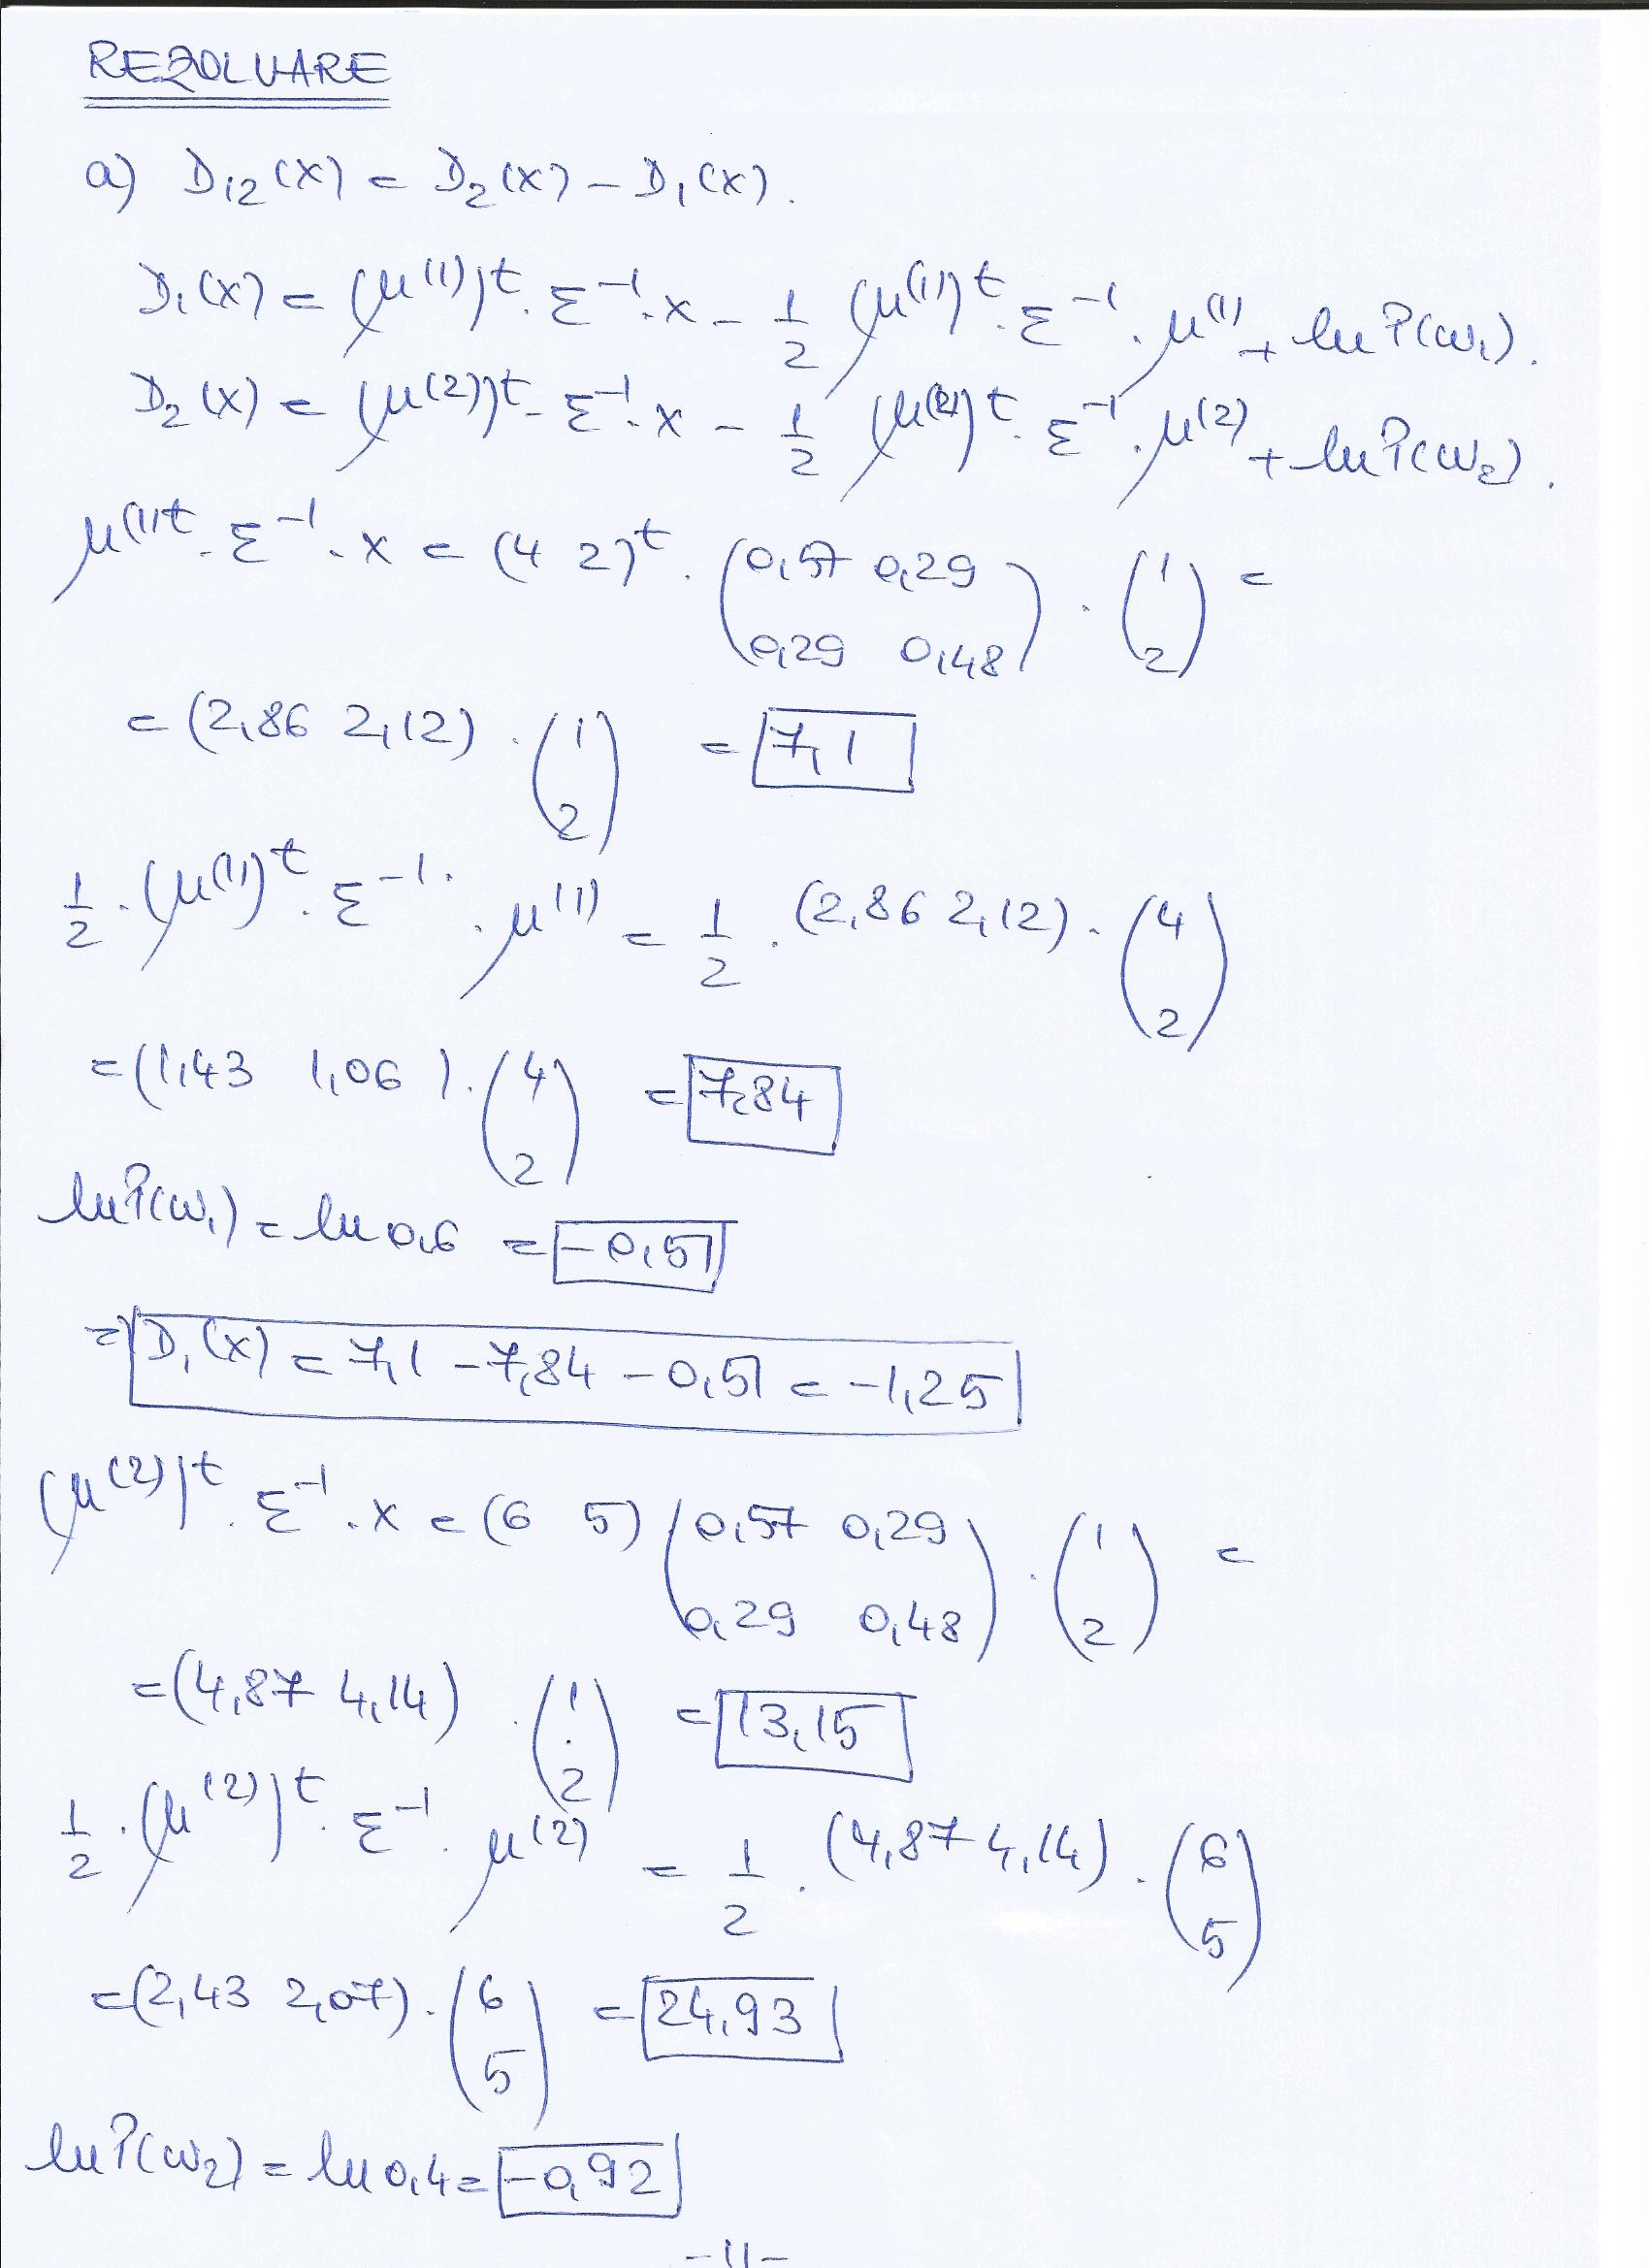 REZOLVARE
a) D₁₂(x) = D₂(x) - D₁(x).
D₁(x) = (μ⁽¹⁾)ᵗ · Σ⁻¹ · x - 1/2 (μ⁽¹⁾)ᵗ · Σ⁻¹ · μ⁽¹⁾ + ln P(ω₁).
D₂(x) = (μ⁽²⁾)ᵗ · Σ⁻¹ · x - 1/2 (μ⁽²⁾)ᵗ · Σ⁻¹ · μ⁽²⁾ + ln P(ω₂).
μ⁽¹⁾ᵗ · Σ⁻¹ · x = (4 2)ᵗ · (0,57 0,29 0,29 0,48) · (1 2) =
= (2,86 2,12) · (1 2) = 7,1
1/2 · (μ⁽¹⁾)ᵗ · Σ⁻¹ · μ⁽¹⁾ = 1/2 · (2,86 2,12) · (4 2)
= (1,43 1,06) · (4 2) = 7,84
ln P(ω₁) = ln 0,6 = -0,51
=> D₁(x) = 7,1 - 7,84 - 0,51 = -1,25
(μ⁽²⁾)ᵗ · Σ⁻¹ · x = (6 5) (0,57 0,29 0,29 0,48) · (1 2) =
= (4,87 4,14) · (1 2) = 13,15
1/2 · (μ⁽²⁾)ᵗ · Σ⁻¹ · μ⁽²⁾ = 1/2 · (4,87 4,14) · (6 5)
= (2,43 2,07) · (6 5) = 24,93
ln P(ω₂) = ln 0,4 = -0,92
-11-